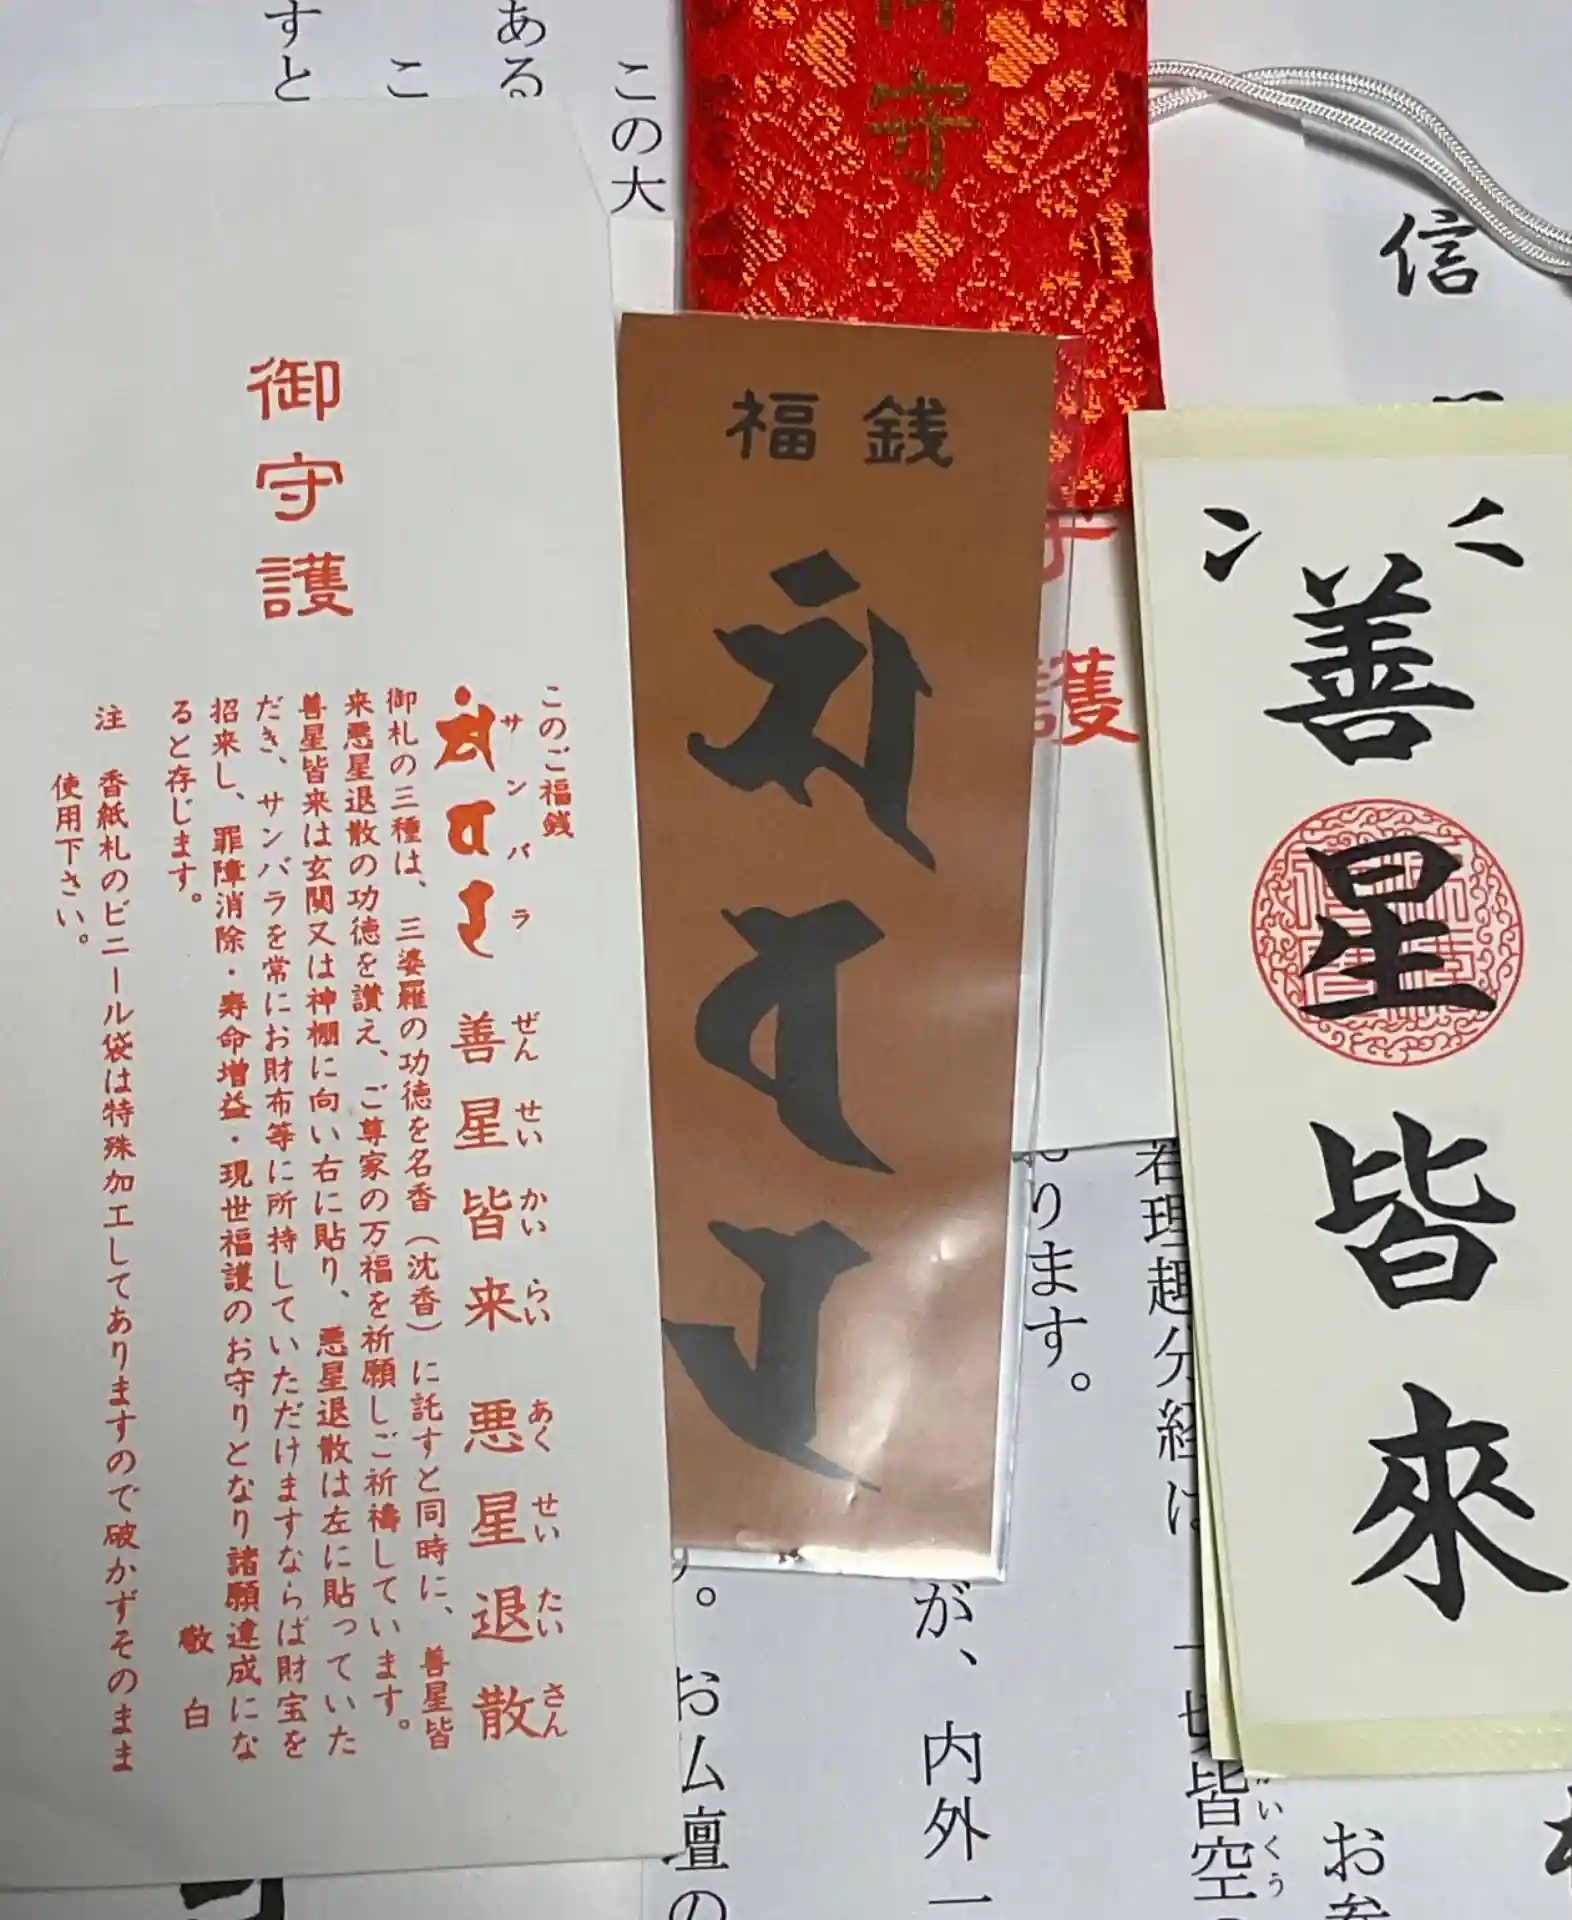 御守護
このご福銭
サンバラ
善星皆来 悪星退散
ぜんせいかいらい あくせいたいさん
御札の三種は、三婆羅の功徳を名香（沈香）に託すと同時に、善星皆
来悪星退散の功徳を讃え、ご尊家の万福を祈願しご祈禱しています。
善星皆来は玄関又は神棚に向い右に貼り、悪星退散は左に貼っていた
だき、サンバラを常にお財布等に所持していただけますならば財宝を
招来し、罪障消除・寿命増益・現世福護のお守りとなり諸願達成にな
ると存じます。
敬白
注 香紙札のビニール袋は特殊加工してありますので破かずそのまま
使用下さい。
福銭
守
護
善星皆來
信
この大
こ
ある
すと
ります。
若理趣分経は
一切皆空
いくう
お参
が、内外一
。お仏壇の